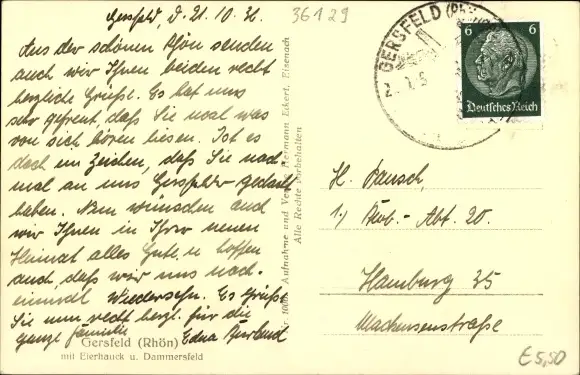 Gersfeld, d. 21.10.36.
36129
Aus der schönen Rhön senden
auch wir Ihnen beiden recht
herzliche Grüße. Es hat uns
sehr gefreut, daß Sie noch was
von sich hören liesen. Ist es
doch ein Zeichen, daß Sie noch
mal an uns Gersfelder gedacht
haben. Nun wünschen auch
wir Ihnen in Ihrer neuen
Heimat alles Gute u. hoffen
auch, daß wir uns noch-
einmal Wiedersehn. Es grüße
Sie nun recht herzl. für die
ganze Familie Edna
Gersfeld (Rhön)
mit Eierhauck u. Dammersfeld
Aufnahme und Hermann Eckert, Eisenach
Alle Rechte vorbehalten
GERSFELD
6 6
Deutsches Reich
H.
1.) Abt. 20.
Hamburg 35
Mackensenstraße
€5,50